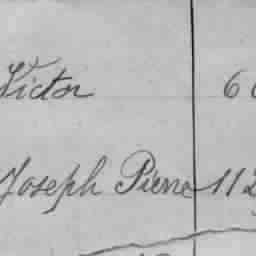 Victor
Joseph Pierre 112